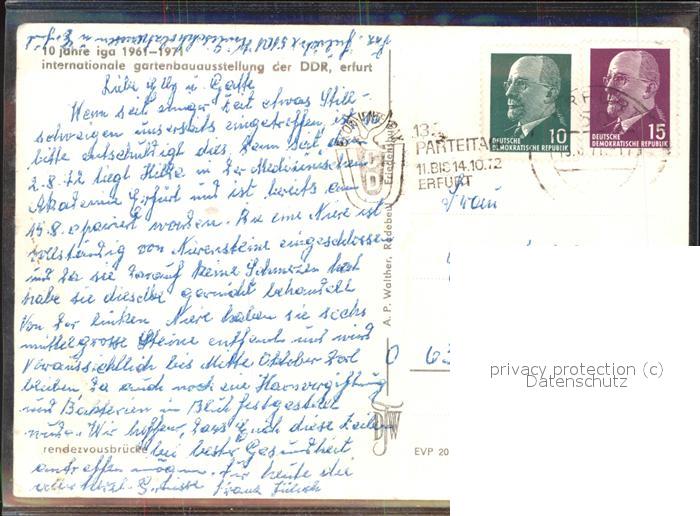 10 jahre iga 1961–1971
internationale gartenbauausstellung der DDR, erfurt
Liebe Elly u. Gatte
Wenn seit einiger Zeit etwas Still-
schweigen unserseits eingetroffen, ist so
bitte entschuldigt dies. Denn seit dem
2.8.72 liegt Hilde in der Medizinischen
Akademie Erfurt und ist bereits am
15.8. operiert worden. Die eine Niere ist
vollständig von Nierensteine eingeschlossen
und da sie darauf keine Schmerzen hat
habe sie dieselbe garnicht behandelt
Von der linken Niere haben sie sechs
mittelgrosse Steine entfernt und wird
Voraussichtlich bis Mitte Oktober dort
bleiben, da auch noch eine Harnvergiftung
und Bakterien im Blut festgestellt
wurde. Wir hoffen, dass Euch diese Zeilen
rendezvousbrücke
bei bester Gesundheit
antreffen mögen. Für heute die
herzl. Grüsse Franz
A. P. Walther, Radebeul
EVP 20
13.
PARTEITA
11. BIS 14.10.72
ERFURT
10
DEUTSCHE
DEMOKRATISCHE REPUBLIK
15
DEUTSCHE
DEMOKRATISCHE REPUBLIK
Frau
63
privacy protection (c)
Datenschutz